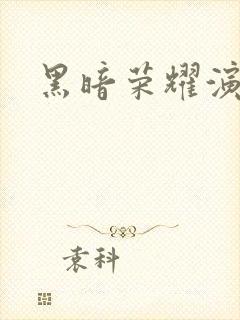 黑暗荣耀演
袁科